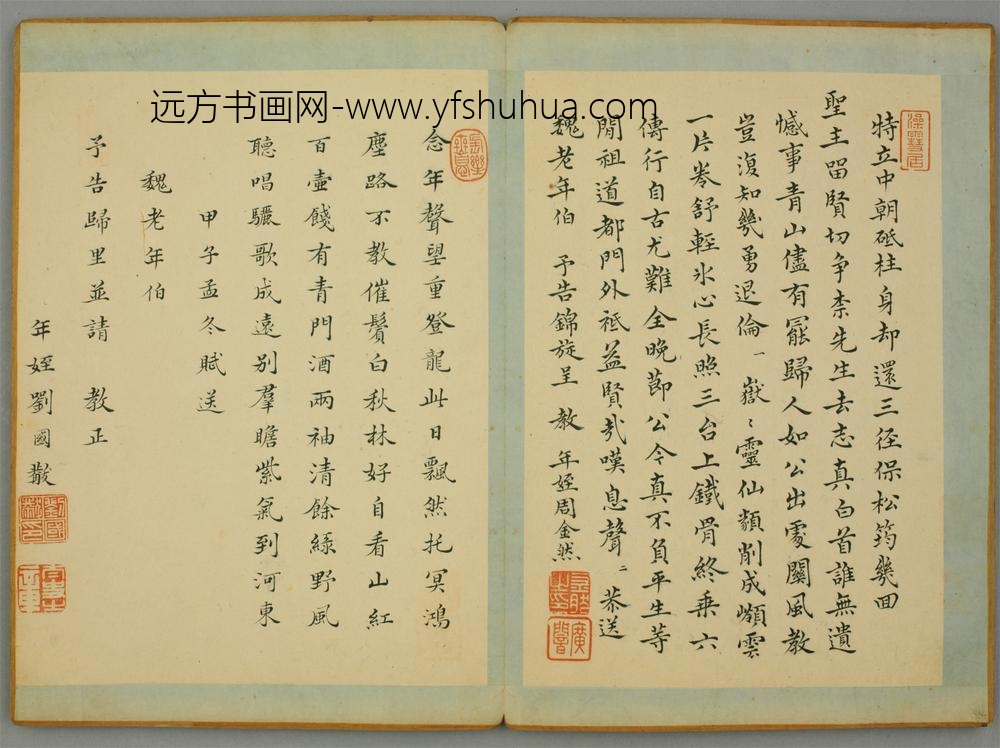 远方书画网-www.yfshuhua.com
特立中朝砥柱身却還三径保松筠幾回
聖主畱賢切争柰先生去志真白首誰無遺
憾事青山儘有罷歸人如公出處關風教
豈復知幾勇退倫一嶽〻靈仙頼削成嬾雲
一片卷舒輕氷心長照三台上鐵骨終乗六
傳行自古尤難全晚莭公今真不負平生等
閒祖道都門外祗益賢㢤嘆息聲二 恭送
魏老年伯 予告錦旋呈 教 年姪周金然
念年聲望重登龍此日飄然托冥鴻
塵路不教催鬢白秋林好自看山紅
百壷餞有青門酒兩袖清餘綠野風
聽唱驪歌成遠别羣瞻紫氣到河東
甲子孟冬賦送
魏老年伯
予告歸里並請 教正
年姪劉國黻